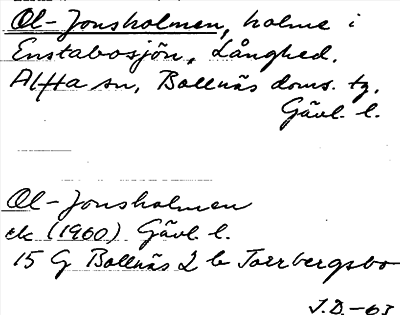 Ol-Jonsholmen, holme i
Enstabosjön, Långhed.
Alfta sn, Bollnäs doms. tg.
Gävl. l.
Ol-Jonsholmen
ek (1960) Gävl. l.
15 G Bollnäs 2 b Torrbergsbo
J.D.-63